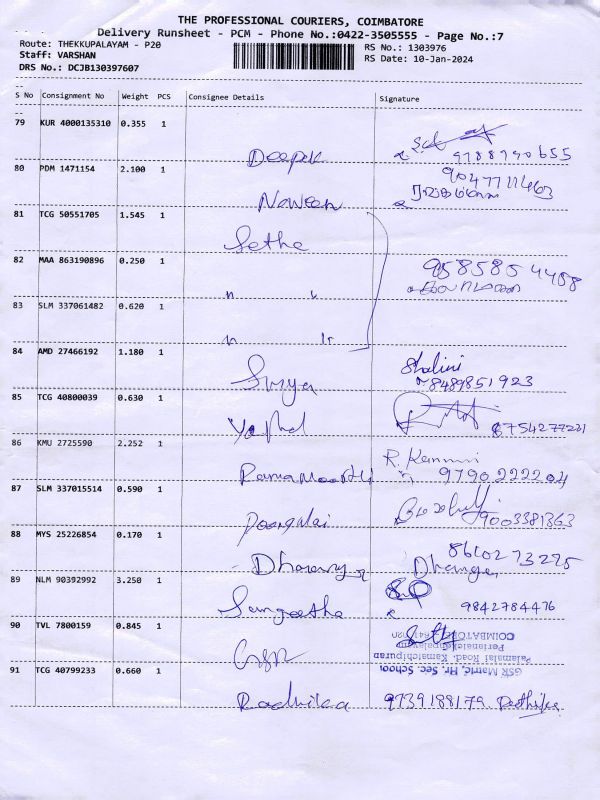 THE PROFESSIONAL COURIERS, COIMBATORE
Delivery Runsheet - PCM - Phone No.:0422-3505555 - Page No.:7
Route: THEKKUPALAYAM - P20
RS No.: 1303976
Staff: VARSHAN
RS Date: 10-Jan-2024
DRS No.: DCJB130397607
S No Consignment No Weight PCS Consignee Details Signature
79 KUR 4000135310 0.355 1
Deepak 9788990655
80 PDM 1471154 2.100 1
9047711463
Naveen
81 TCG 50551705 1.545 1
Setha
82 MAA 863190896 0.250 1
9585854458
" "
83 SLM 337061482 0.620 1
" "
84 AMD 27466192 1.180 1
Shalini
Surya 8489851923
85 TCG 40800039 0.630 1
8754277221
86 KMU 2725590 2.252 1
R. Kannmi
Ramamoorthy 9790222204
87 SLM 337015514 0.590 1
Poongalai 9003381363
88 MYS 25226854 0.170 1
8610273225
Dharany
89 NLM 90392992 3.250 1
Sangeetha 9842784476
90 TVL 7800159 0.845 1
COIMBATORE
Palamalai Road, Kamatchipuran
GSR Matric, Hr, Sec. School
GSR
91 TCG 40799233 0.660 1
Radhika 9739188179 Radhika